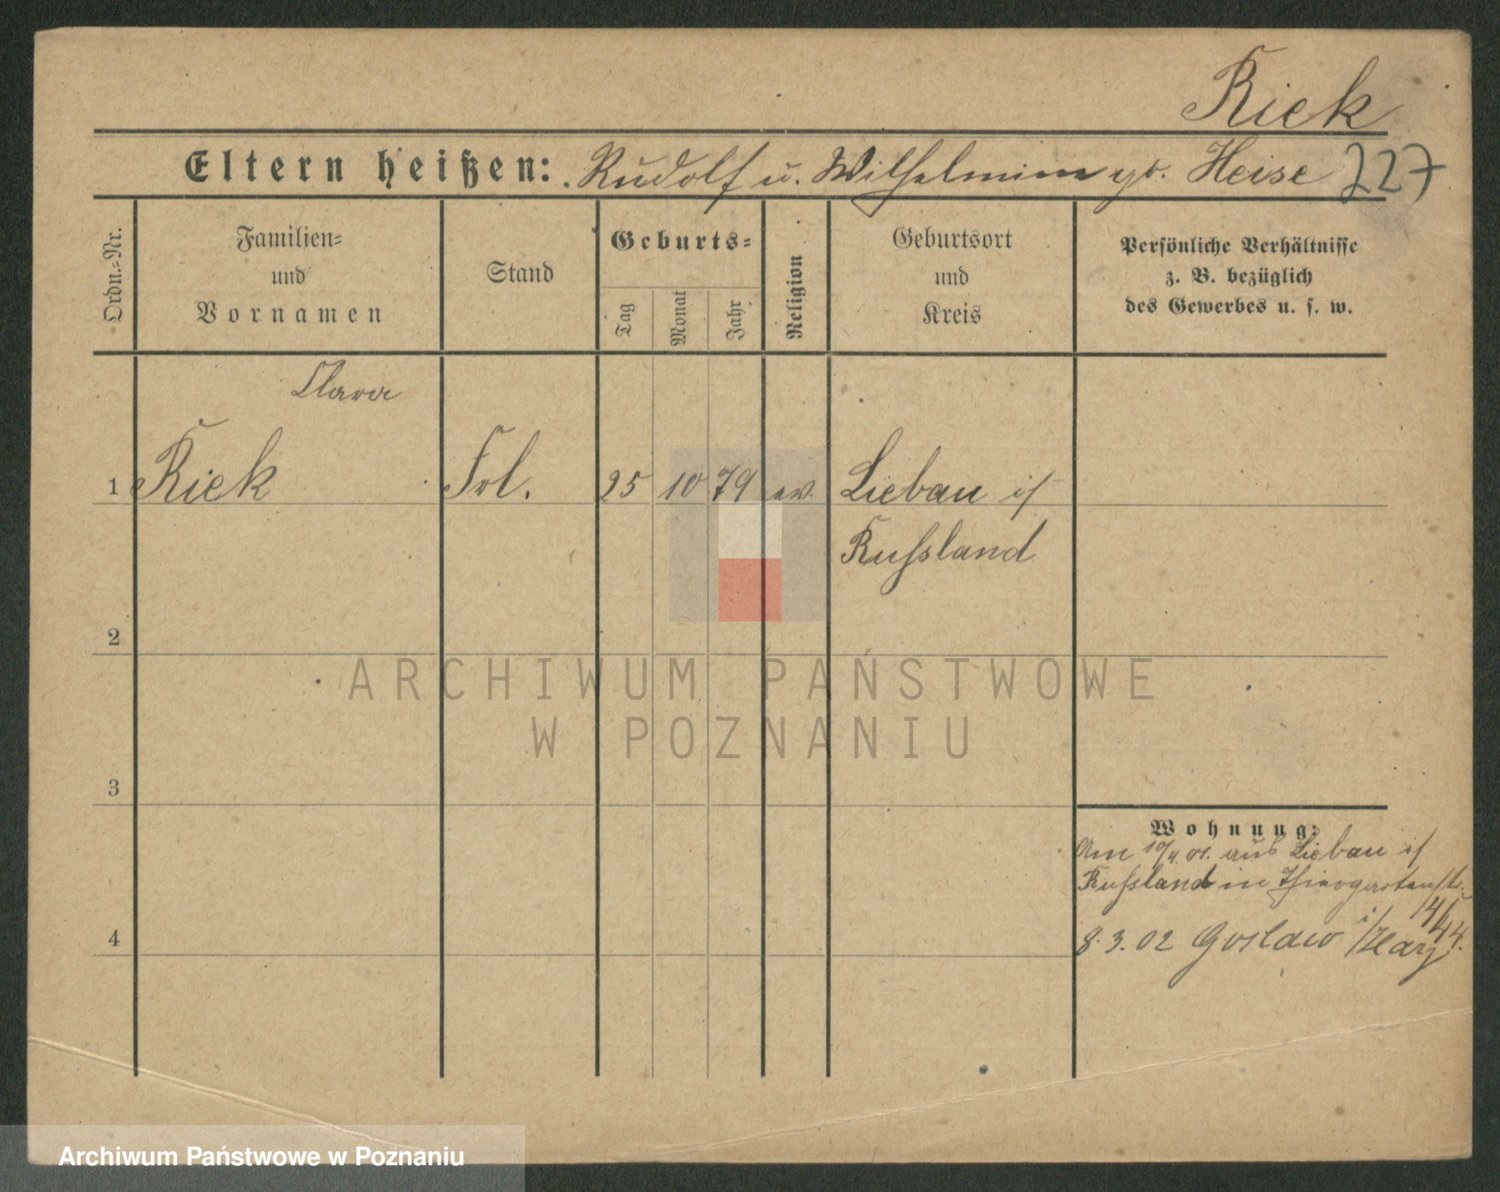 Riek
Eltern heißen: Rudolf u. Wilhelmine gb. Heise 227
Ordn.-Nr.
Familien-
und
Vornamen
Stand
Geburts-
Tag
Monat
Jahr
Religion
Geburtsort
und
Kreis
Persönliche Verhältnisse
z. B. bezüglich
des Gewerbes u. s. w.
Clara
1 Riek Frl. 25 10 79 ev. Liebau i/
Russland
2
3
4
Wohnung:
Am 19/4 01. aus Liebau i/
Russland in Thiergartenstr.
8. 3. 02 Goslaw i/Harz
ARCHIWUM PAŃSTWOWE
W POZNANIU
Archiwum Państwowe w Poznaniu